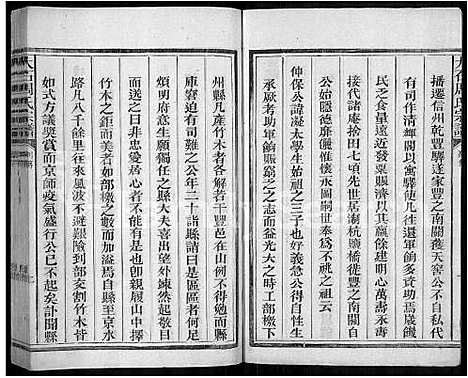 播遷信州乾豐驛遂家豐之南關蓩天窖公不自私代
有司作清輝閣以寓驛使凡往還軍餉多資助歲饑
民食嘗量遠近發粟賑濟月以其贏餘建明心萬壽
接代諸庵捨田七頃先世居瀨杭驥橋徙豐之南關自
公始隱德彌邵惟懷永圖嗣世奉爲不祧之祖云
仲良公諱凝太學生始祖之三子也好學
承厥考助軍餉賑窮乏之志而益光大之時工部檄下
州縣凡產竹木者各解若干豐邑在山例不得免當
庫窘迫有難色公年二十詣縣請曰是區區者何足
煩明府意生願獨任之縣大夫喜出望外竦然起敬曰
而以一言之非忠愛居心者不能有是也卽親履山中擇
竹木之鉅而美者如部檄之數而加溢焉自縣至京水
路凡八千餘里往來風波不避艱險到部交割竹木皆
如式方議奬賞而京師疫氣盛行公已不起矣訃聞縣